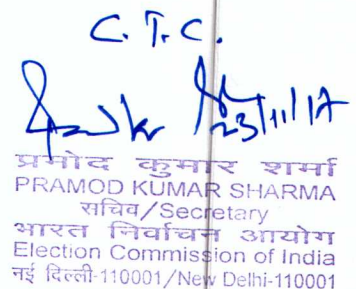 C. T. C.
23/11/17
प्रमोद कुमार शर्मा
PRAMOD KUMAR SHARMA
सचिव/Secretary
भारत निर्वाचन आयोग
Election Commission of India
नई दिल्ली-110001/New Delhi-110001